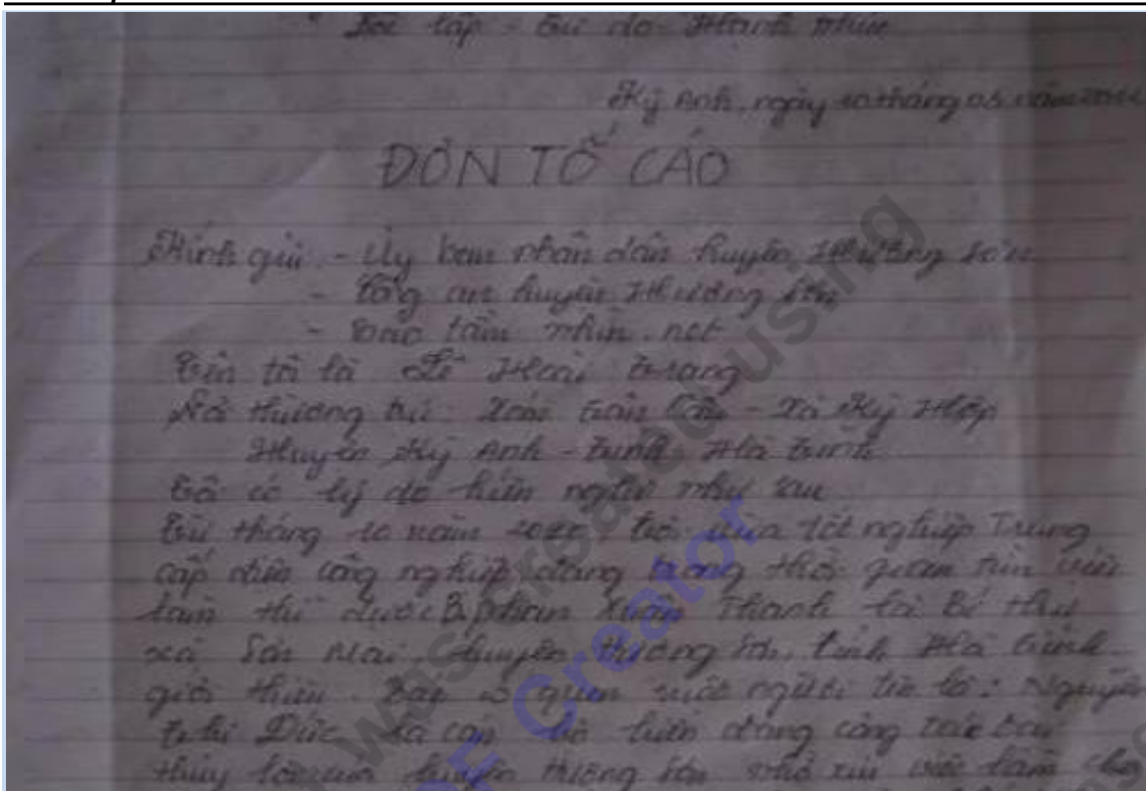 Độc lập - Tự do - Hạnh Phúc
Kỳ Anh, ngày 10 tháng 05 năm
ĐƠN TỐ CÁO
Kính gửi: - Ủy ban nhân dân huyện Hương Sơn
- Công an huyện Hương Sơn
- Báo tầm nhìn.net
Tên tôi là Lê Hoài Trang
Nơi thường trú: Xóm Trần - Xã Kỳ Hợp
Huyện Kỳ Anh - Tỉnh Hà Tĩnh
Tôi có lý do kiến nghị như sau
Từ tháng 10 năm tôi vừa tốt nghiệp Trung
cấp công nghiệp đang trong thời gian tìm việc
làm thì được phan Xuân Thanh là Bí thư
xã Sơn Mai, huyện Hương Sơn, tỉnh Hà Tĩnh
giới thiệu quen một người tên là: Nguyễn
Thị Đức là cán bộ hiện đang công tác tại
thủy lợi huyện Hương Sơn xin việc làm cho
was created using
PDF Creator